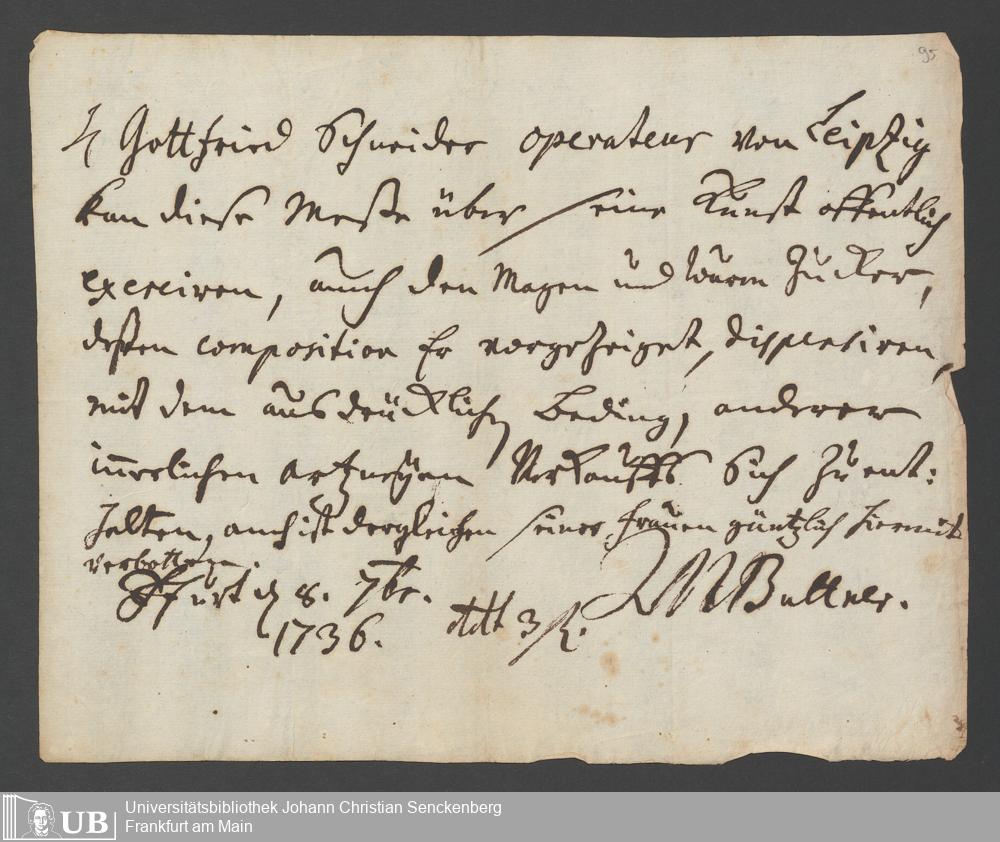 95
H Gottfried Schneider operateur von Leipzig
kan diese Meße über seine Kunst offentlich
exerciren, auch den Magen und Wurm Zucker,
deßen composition Er vorgezeiget, dispensiren,
mit dem ausdrücklichen Beding, anderer
innerlichen artzneyen Verkauffs sich zu ent:
halten, auch ist dergleichen seiner frauen gäntzlich hiermit
verbotten
Ffurt d 8. 7br.
1736. dtt 3 MBüttner.
Universitätsbibliothek Johann Christian Senckenberg
UB Frankfurt am Main